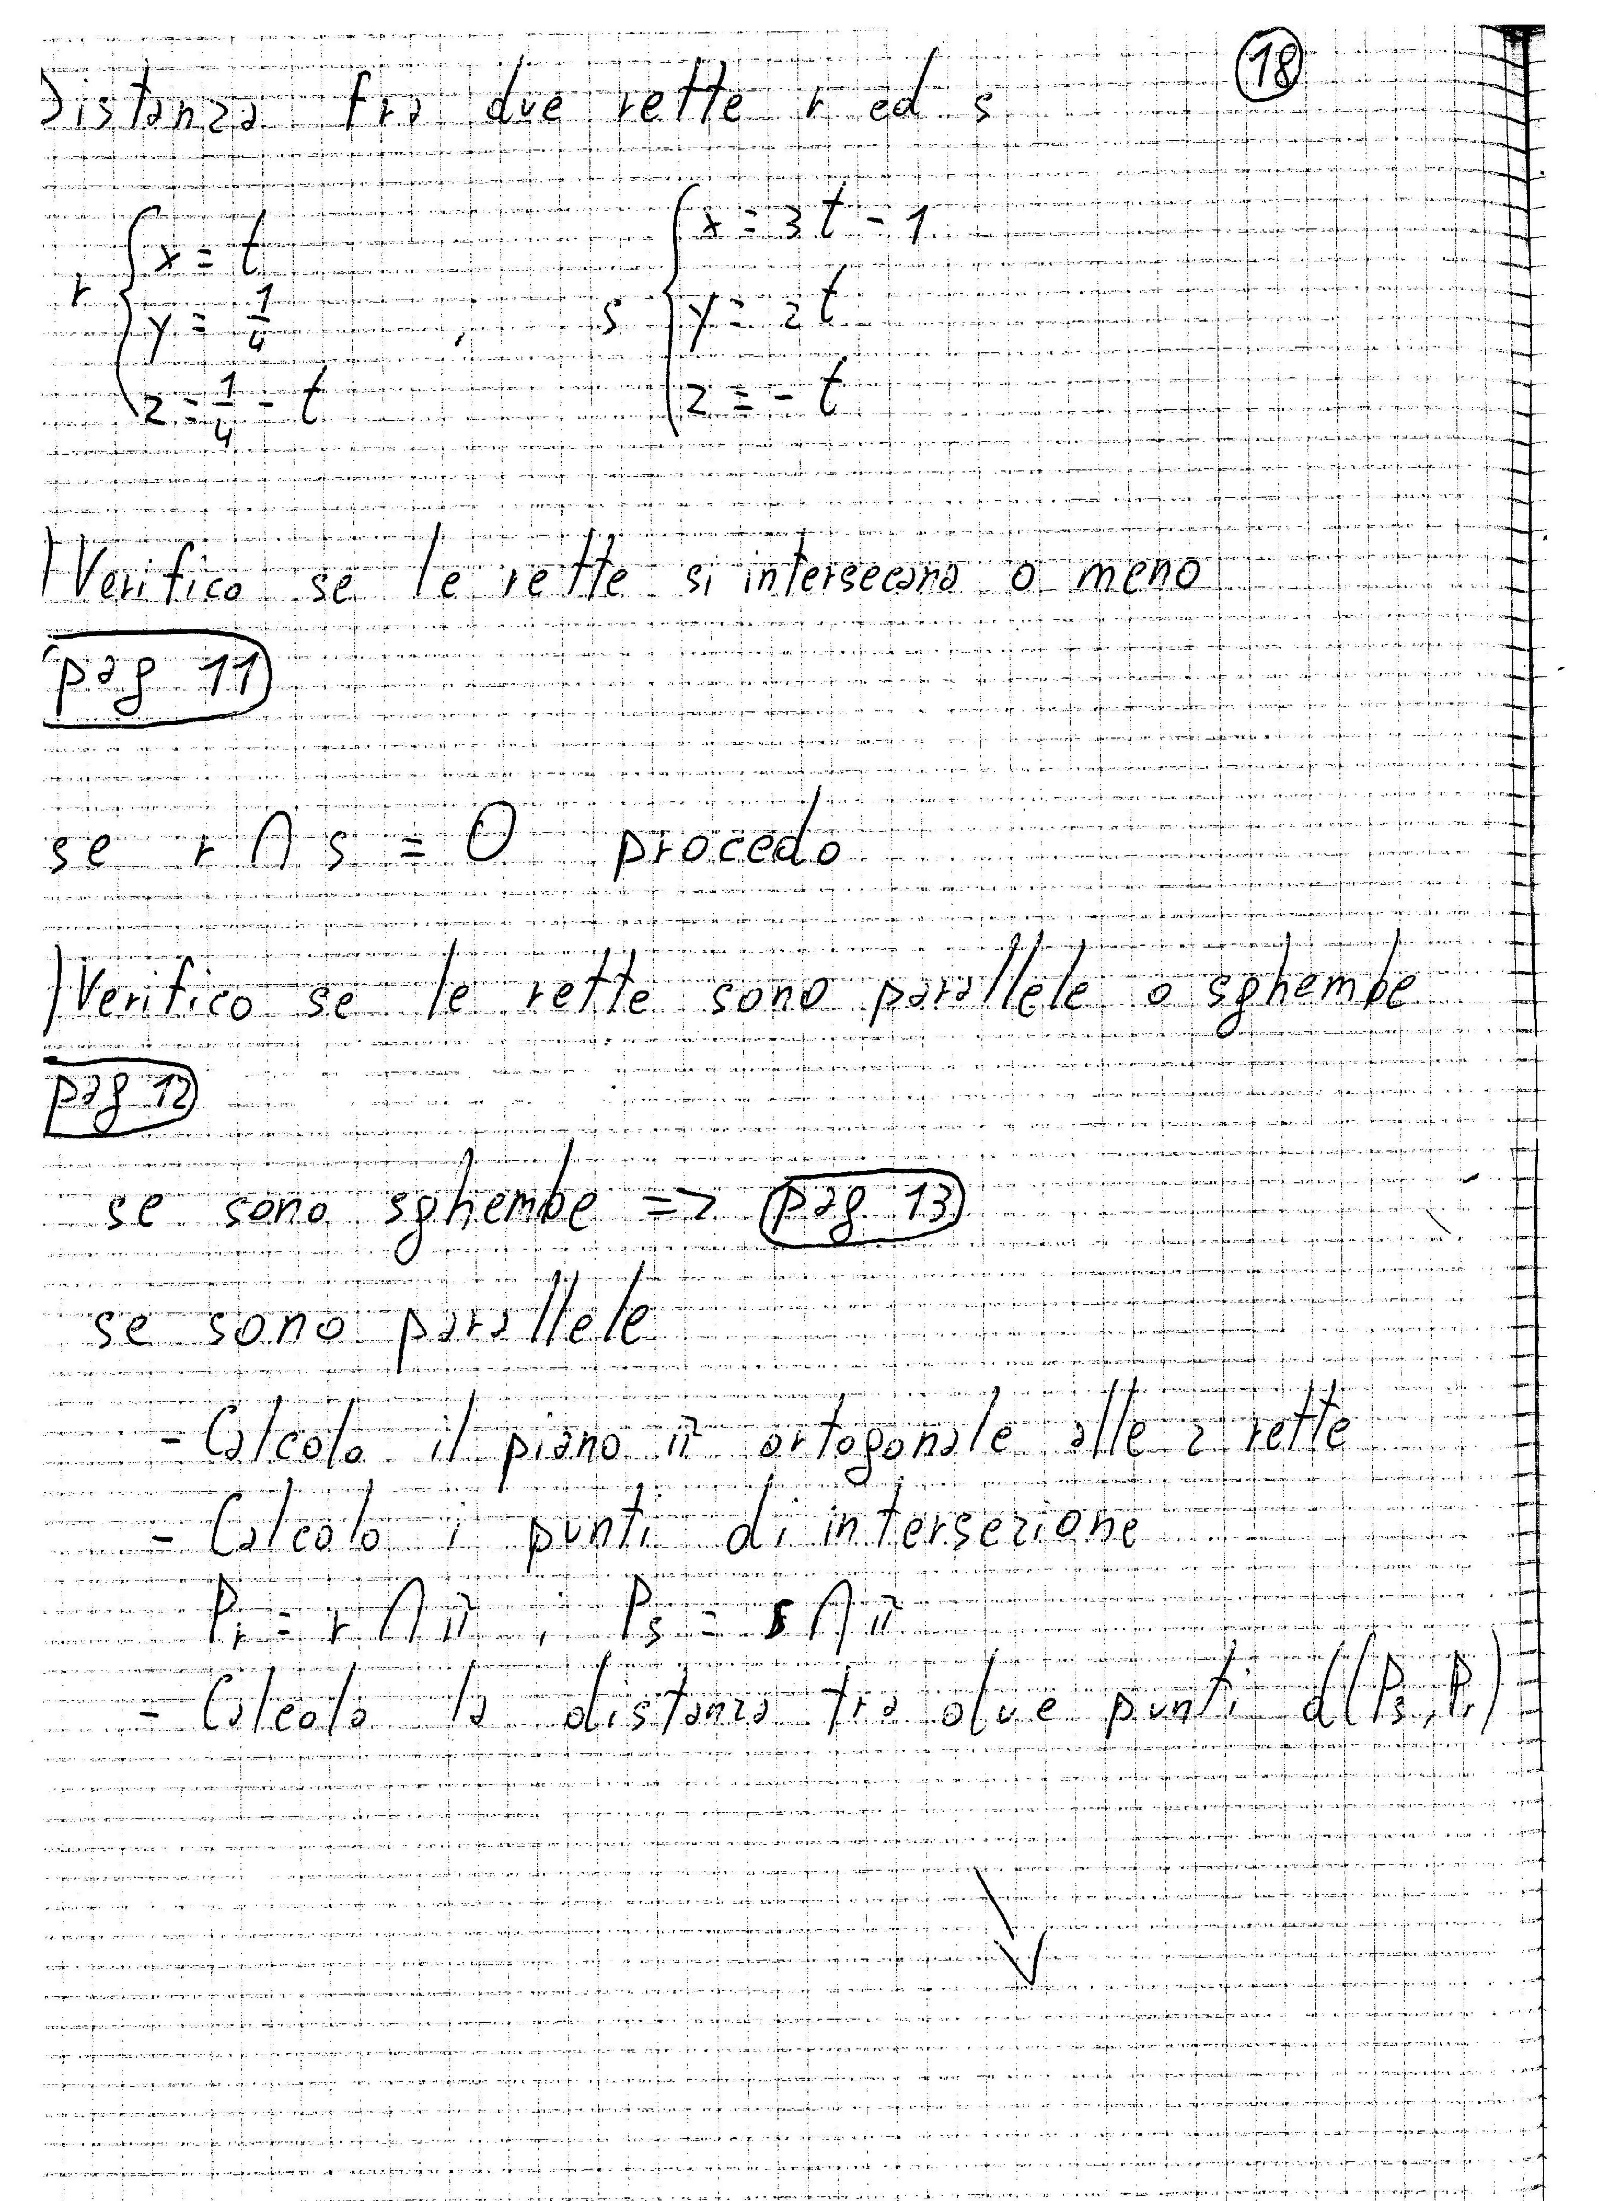 18
Distanza fra due rette r ed s
r { x = t
y = 1/4
z = 1/4 - t
,
s { x = 3t - 1
y = 2t
z = - t
) Verifico se le rette si intersecano o meno
pag 11
se r ∩ s = 0 procedo
) Verifico se le rette sono parallele o sghembe
pag 12
se sono sghembe => pag. 13
se sono parallele
- Calcolo il piano π ortogonale alle 2 rette
- Calcolo i punti di intersezione
Pr = r ∩ π ; Ps = s ∩ π
- Calcolo la distanza tra due punti d(Ps, Pr)